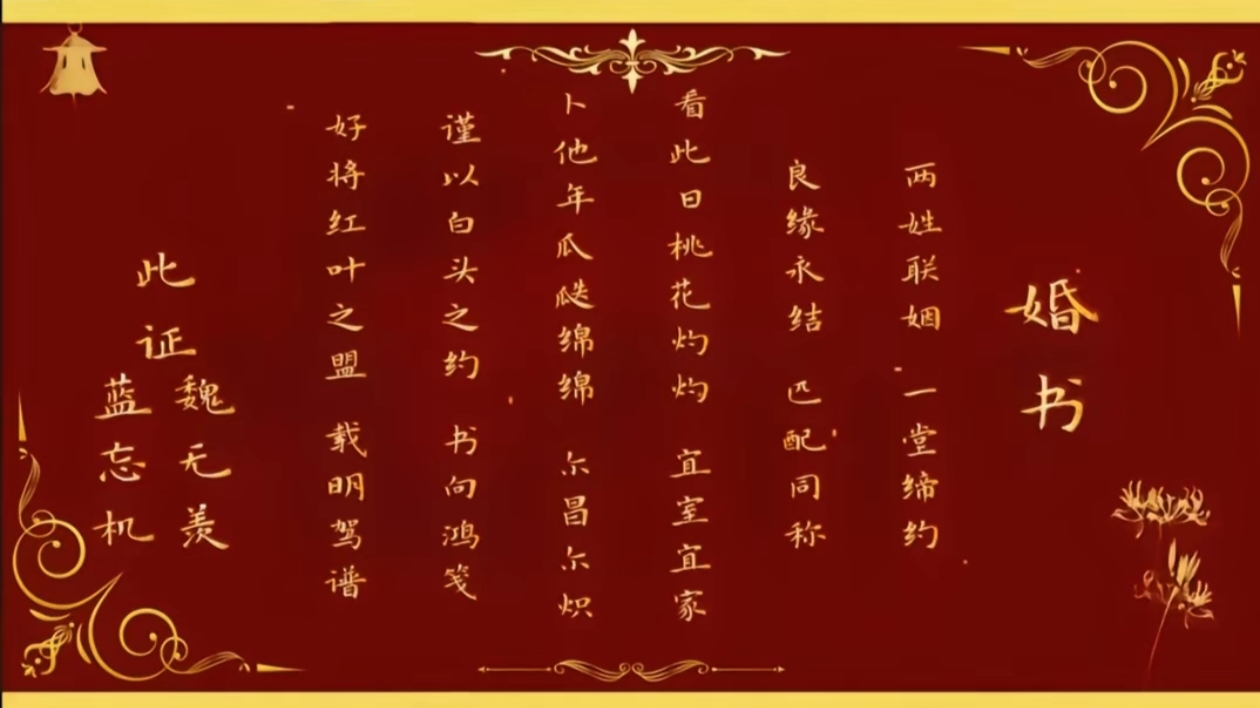 婚书
两姓联姻 一堂缔约
良缘永结 匹配同称
看此日桃花灼灼 宜室宜家
卜他年瓜瓞绵绵 尔昌尔炽
谨以白头之约 书向鸿笺
好将红叶之盟 载明驾谱
此证
魏无羡
蓝忘机